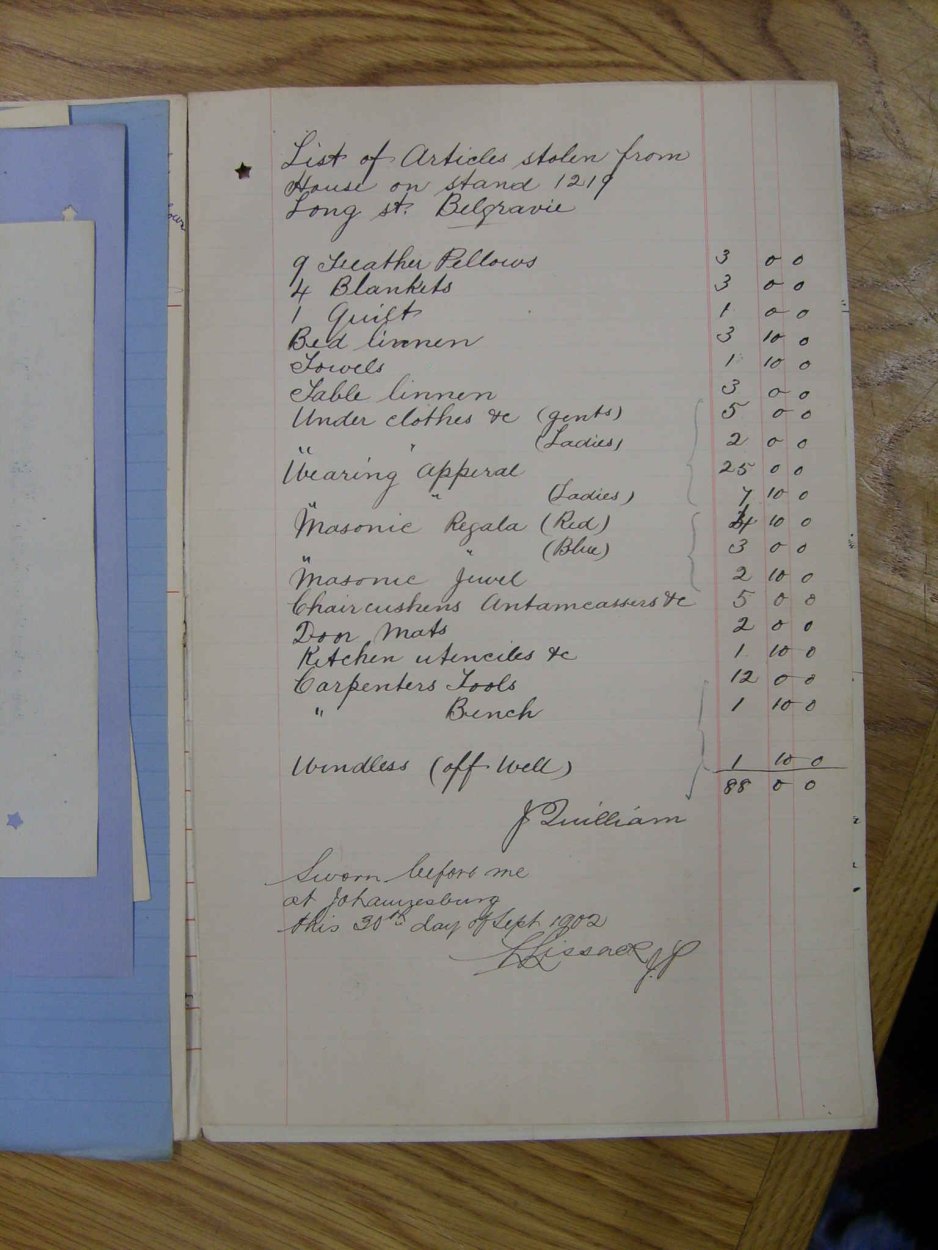 List of Articles stolen from
House on stand 1219
Long st. Belgravie
9 Feather Pellows 3 0 0
4 Blankets 3 0 0
1 Quilt 1 0 0
Bed linnen 3 10 0
Towels 1 10 0
Table linnen 3 0 0
Under clothes &c (gents) 5 0 0
" " (Ladies) 2 0 0
Wearing Apperal 25 0 0
" " (Ladies) 7 10 0
Masonic Regala (Red) 4 10 0
" " (Blue) 3 0 0
Masonic Juvel 2 10 0
Chair cushens Antamcassers &c 5 0 0
Door Mats 2 0 0
Kitchen utenciles &c 1 10 0
Carpenters Tools 12 0 0
" Bench 1 10 0
Windless (off Well) 1 10 0
88 0 0
J Quilliam
Sworn before me
at Johannesburg
this 30th day of Sept 1902
Lissack J.P